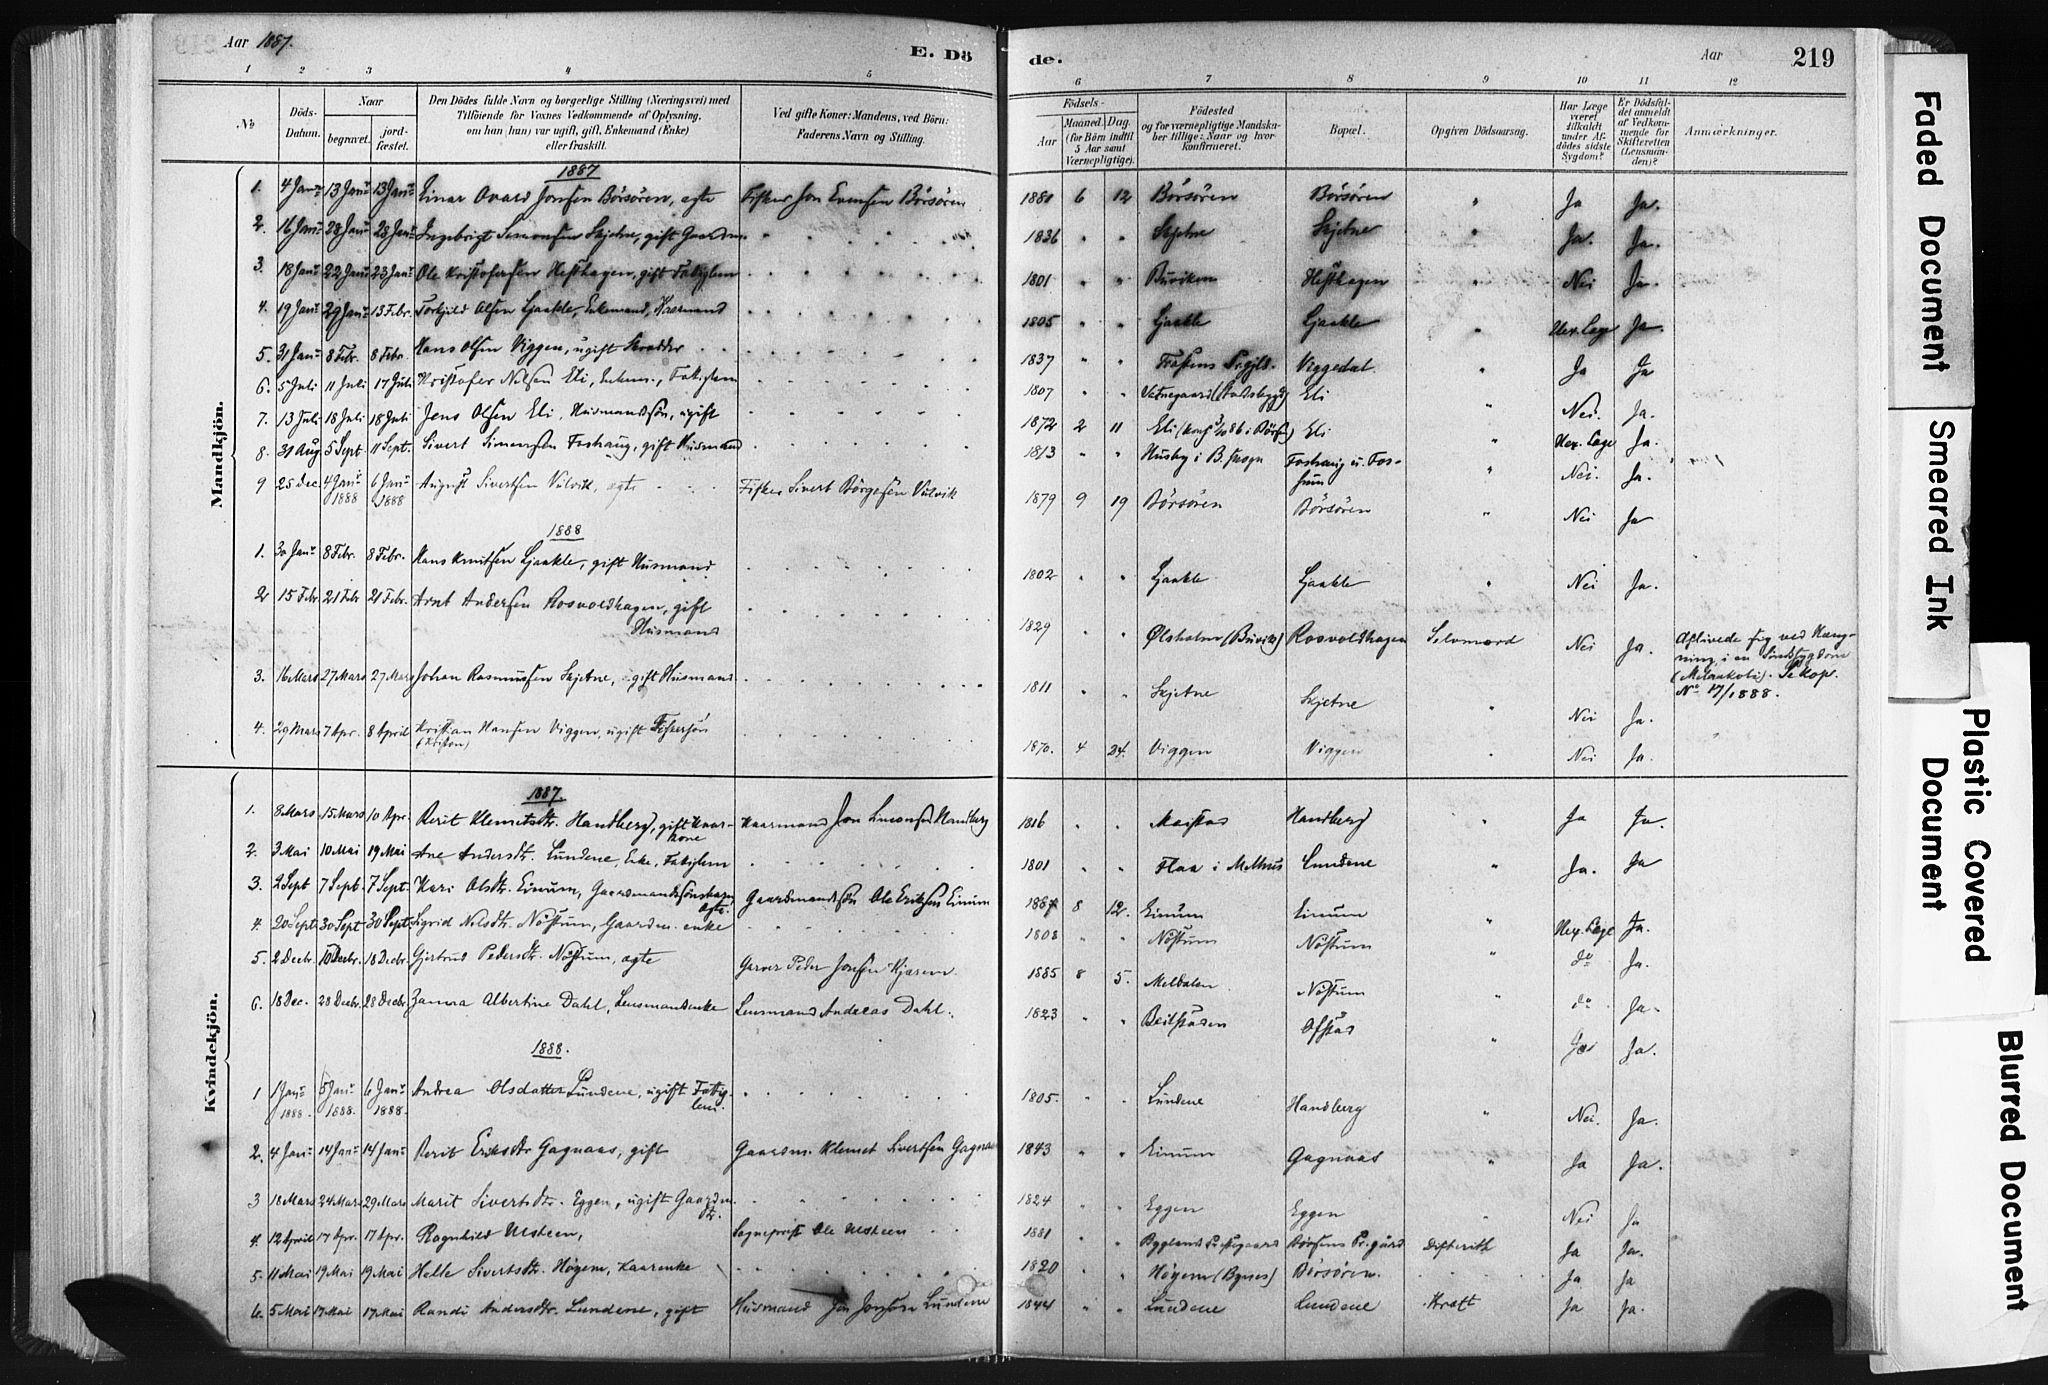 Aar 1887.
E. Dö
de.
Aar
219
1 2 3 4 5 6 7 8 9 10 11 12
No
Döds-Datum.
Naar
begravet.
jord-fæstet.
Den Dödes fulde Navn og borgerlige Stilling (Næringsvei) med
Tilföiende for Voxnes Vedkommende af Oplysning,
om han (hun) var ugift, gift, Enkemand (Enke)
eller fraskilt.
Ved gifte Koner: Mandens, ved Börn:
Faderens Navn og Stilling.
Födsels-
Aar
Maaned. Dag.
(for Börn indtil
5 Aar samt
Værnepligtige).
Födested
og for værnepligtige Mandska-
ber tillige: Naar og hvor
konfirmeret.
Bopæl.
Opgiven Dödsaarsag.
Har Læge
været
tilkaldt
under Af-
dödes sidste
Sygdom?
Er Dödsfal-
det anmeldt
af Vedkom-
mende for
Skifteretten
(Lensman-
den)?
Anmærkninger.
Mandkjön.
1887
1. 4 Janr 13 Janr 13 Janr Einar Ovard Jonsen Börsören, ægte Fisker Jon Evensen Börsören 1881 6 12 Börsören Börsören " Ja Ja.
2. 16 Janr 28 Janr 28 Janr Ingebrigt Simonsen Skjetne, gift Gaardm. 1836 " " Skjetne Skjetne " Ja. Ja.
3. 18 Janr 22 Janr 23 Janr Ole Kristofersen Hesthagen, gift Fattiglem 1801 " " Buviken Hesthagen " Nei Ja.
4. 19 Janr 29 Janr 13 Febr. Torkjild Olsen Ljaakle, Enkemand, Kaarmand 1805 " " Ljaakle Ljaakle " Hex. Læge Ja
5. 31 Janr 8 Febr. 8 Febr. Hans Olsen Viggen, ugift Skrædder 1837 " " Prgjld. Viggedal " Ja Ja
6. 5 Juli 11 Juli 17 Juli Kristofer Nilsen Eli, Enkem., Fattiglem 1807 " " (Stadsbygd) Eli " Nei. Ja.
7. 13 Juli 18 Juli 18 Juli Jens Olsen Eli, Husmandssön, ugift 1872 2 11 Eli (konf. 3/10 86 i Börsen) Eli " Hex. Læge Ja.
8. 31 Aug. 5 Sept 11 Sept. Sivert Simonsen Foshaug, gift Husmand 1813 " " Husby i B. sogn Foshaug u. Fos-
" Nei. Ja.
9 25 Dec. 4 Janr 1888 6 Janr 1888 August Sivertsen Vulvik, ægte Fisker Sivert Börgesen Vulvik 1879 9 19 Börsören Börsören " Nei Ja
1888
1. 30 Janr 8 Febr. 8 Febr. Hans Knutsen Ljaakle, gift Husmand. 1802 " " Ljaakle Ljaakle " Nei Ja.
2 15 Febr 21 Febr 21 Febr. Arnt Andersen Rosvoldhagen, gift
Husmand 1829 " " Ølsholm (Buvik) Rosvoldhagen Selvmord Nei Ja. Aflivede sig ved Hæng-
ning, i en Sindssygdom
(Melankoli). Se Kop.
No 17/1888.
3. 16 Mars 27 Mars 27 Mars Johan Rasmussen Skjetne, gift Husmand 1811 " " Skjetne Skjetne " Nei Ja.
4. 29 Mars 7 Apr. 8 April Kristian Hansen Viggen, ugift Fiskersön
(Kristen) 1870. 4 24. Viggen Viggen " Nei Ja.
Kvindekjön.
1887.
1. 8 Mars 15 Mars 10 Apr. Berit Klemetsdtr. Handberg, gift Kaar-
kone Kaarmand Jon Simonsen Handberg 1816 " " Maistad Handberg " Ja Ja.
2. 3 Mai 10 Mai 19 Mai Ane Andersdtr. Lundene, Enke, Fattiglem 1801 " " Flaa i Melhus Lundene " Ja. Ja
3. 2 Sept 7 Sept. 7 Sept. Kari Olsdtr. Einum, Gaardmandssönsbarn
ægte. Gaardmandssön Ole Eriksen Einum 1887 8 12. Einum Einum " Hex. Læge Ja.
4. 20 Sept. 30 Sept 30 Sept. Sigrid Nilsdtr. Nöstum, Gaardm. enke 1808 " " Nöstum Nöstum " do Ja.
5. 2 Decbr. 10 Decbr. 18 Decbr. Gjertrud Pedersdtr. Nöstum, ægte Garver Peder Jonsen Kjærem 1885 8 5. Melbalen Nöstum " do Ja.
6. 18 Dec. 28 Decbr. 28 Decbr. Zanna Albertine Dahl, Lensmandsenke Lensmand Andreas Dahl. 1823 " " Beilstaden Ofstad " Ja Ja.
1888.
1 1 Janr 1888. 5 Janr 1888. 6 Janr 1888. Andrea Olsdatter Lundene, ugift Fattig-
lem. 1805. " " Lundene Handberg " Nei. Ja.
2. 4 Janr 14 Janr 14 Janr Berit Eriksdtr Gagnaas, gift Gaardm. Klemet Sivertsen Gagnaas 1843 " " Einum Gagnaas " Ja Ja.
3 18 Mars 24 Mars 29 Mars Marit Sivertsdtr. Eggen, ugift Gaardm.
dtr. 1824 " " Eggen Eggen " Nei Ja
4. 12 April 17 Apr. 17 Apr. Ragnhild Utsteen, Sogneprest Ole Utsteen 1881 " " Bygland Prestegaard Börsens Pr.gård Difterith Ja Ja.
5. 11 Mai 19 Mai 19 Mai Helle Sivertsdtr. Högem, Kaarenke 1820 " " Högem (Bynes) Börsören. Ja Ja
6. 5 Mai 17 Mai 17 Mai Randi Andersdtr. Lundene, gift Husmand Jon Jonsen Lundene 1844 " " Lundene Lundene Kræft Ja Ja.
Faded Document
Smeared Ink
Plastic Covered
Document
Blurred Document